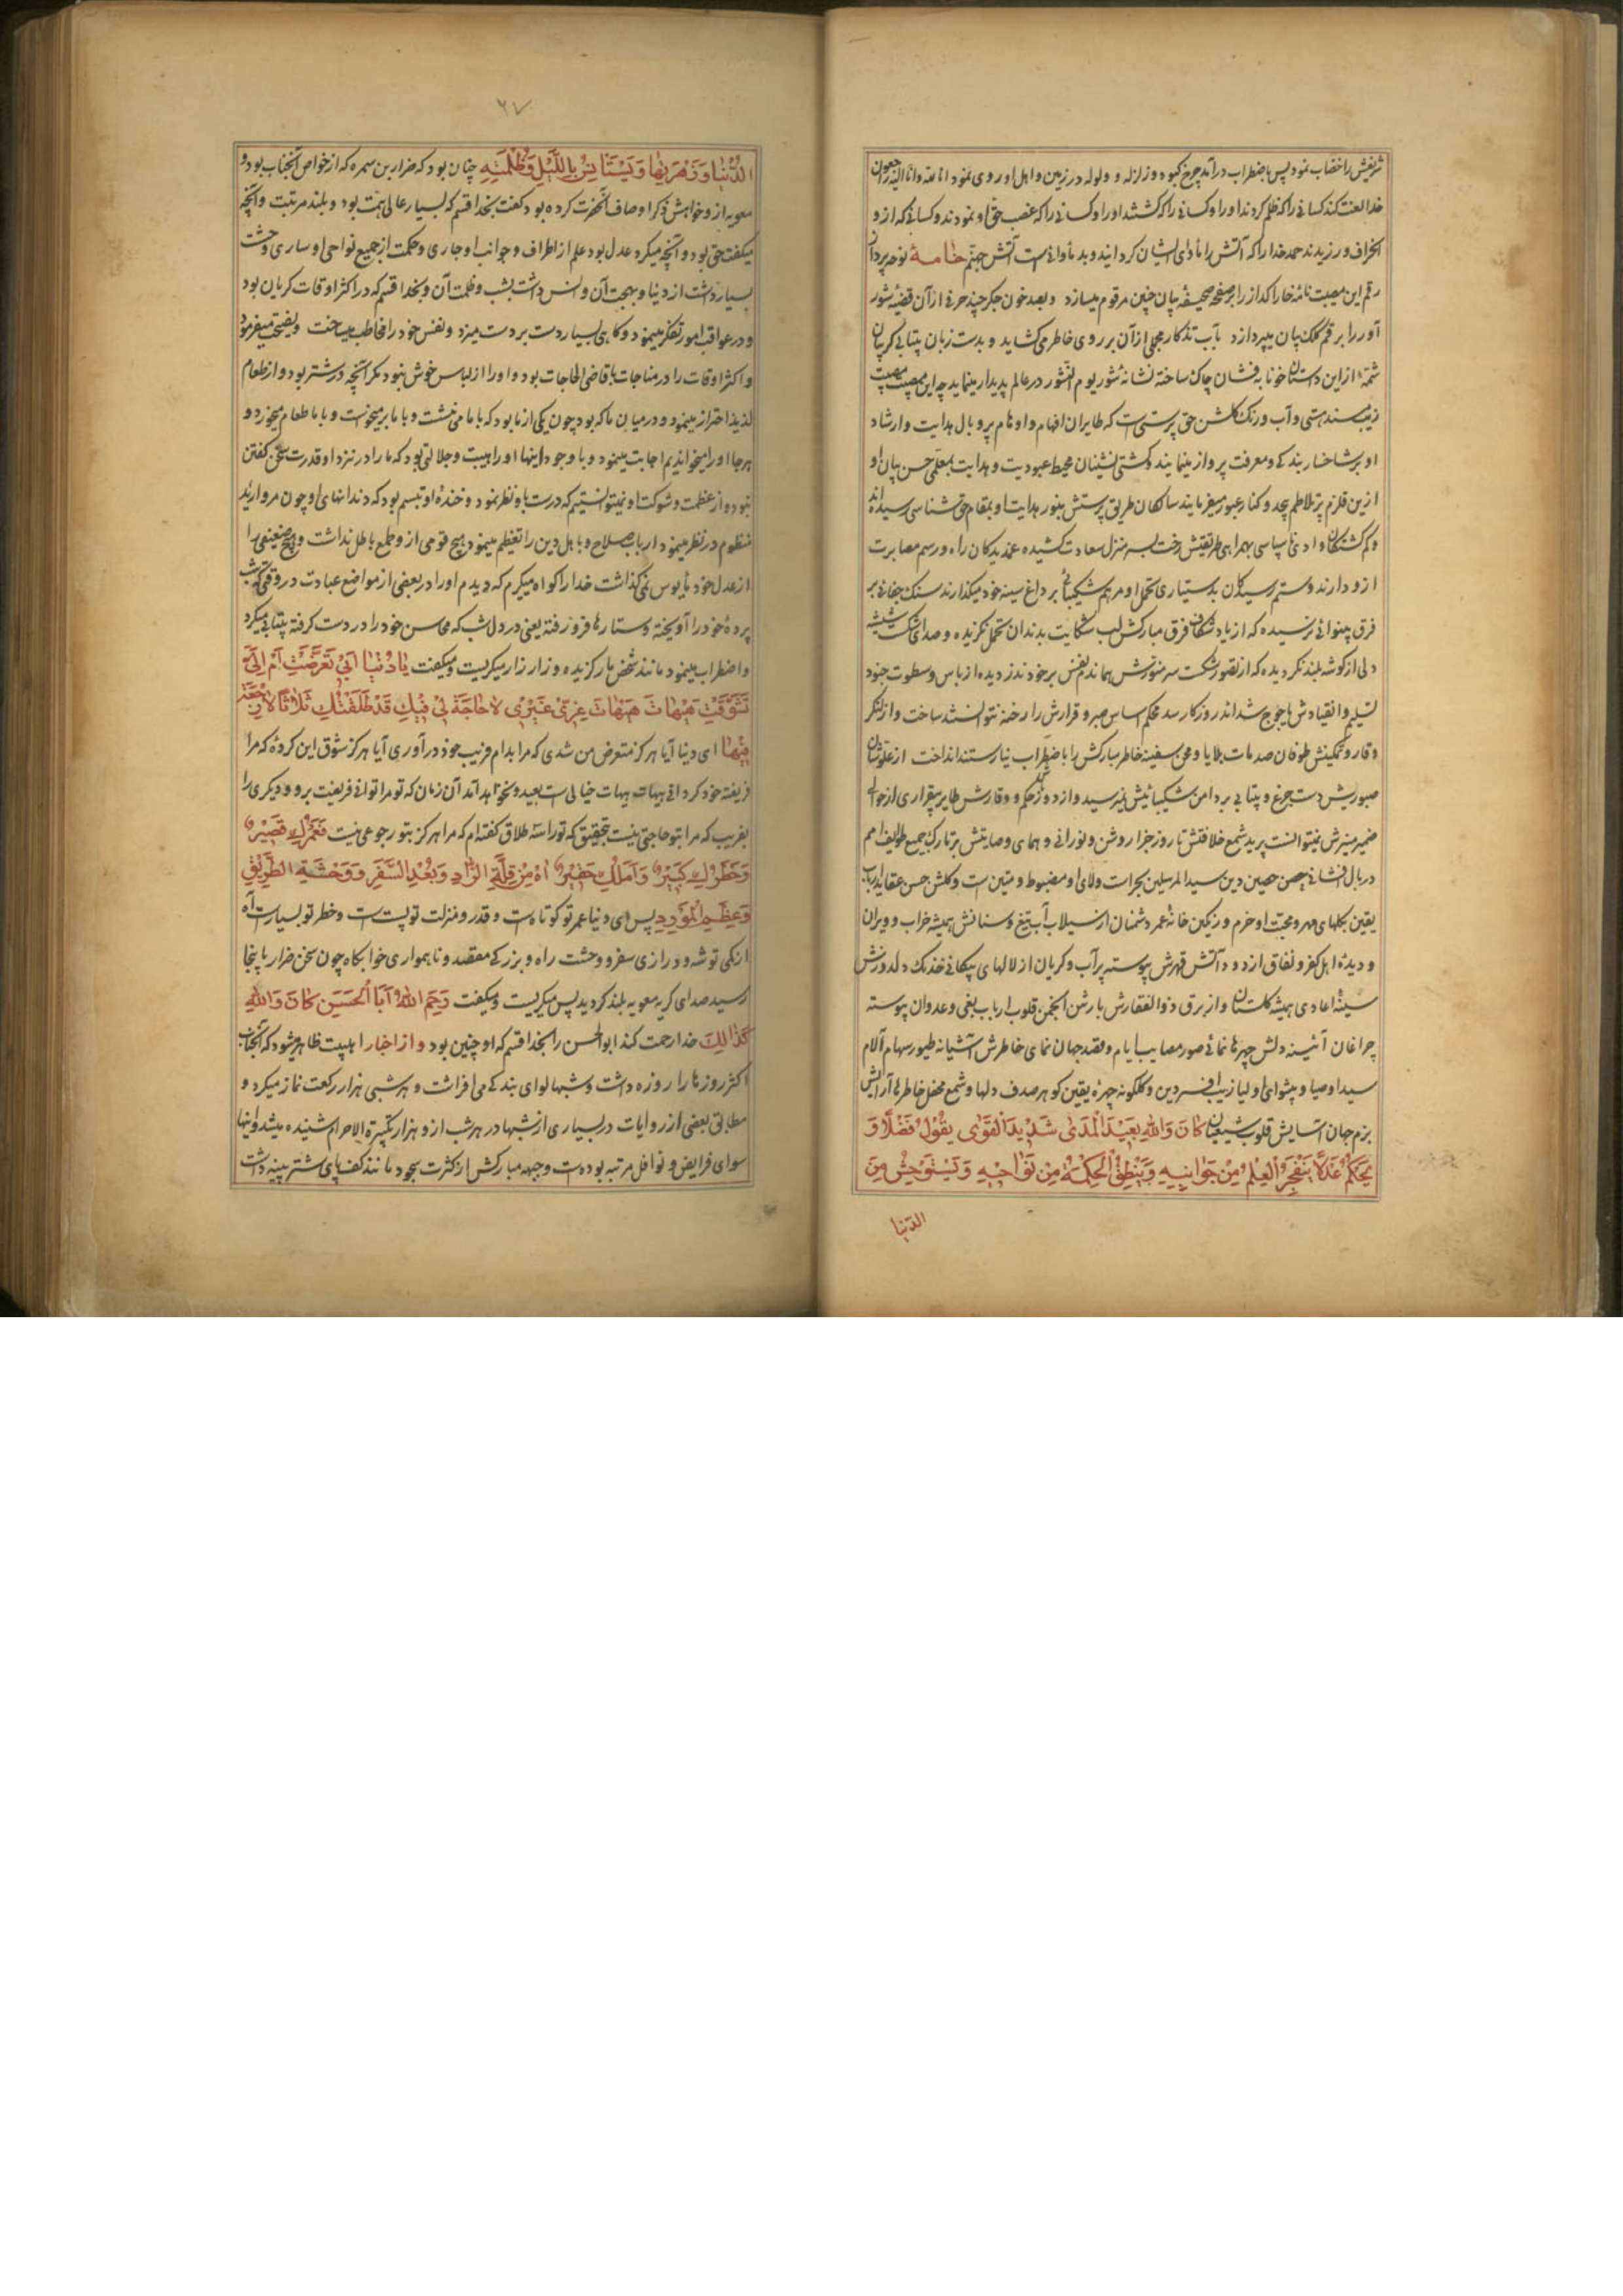 شریفش را خضاب نمود پس باضطراب درآمد چرخ کبود و زلزله و ولوله در زمین و اهل او روی نمود انا لله و انا الیه راجعون
خدا لعنت کند کسانی را که ظلم کردند او را و کسانی را که کشتند او را و کسانی را که غصب حق او نمودند و کسانی که از و
انحراف ورزیدند حمد خدا را که آتش را مأوای ایشان گردانید و بد مأوائی است آتش جهنم خامهٔ نوحه پرداز
رقم این مصیبت نامهٔ خارا گداز را بر صفحهٔ صحیفهٔ بیان چنین مرقوم میسازد و بصد خون جگر چند حرفی از آن قضیهٔ شور
آور را بر قلم کلک بیان میپردازد بآب تذکار مجملی از آن بر روی خاطر میکشاید و بدست زبان بیتابی گریبان
شمهٔ از این داستان خونابه فشان چاک ساخته نشانهٔ شور یوم النشور در عالم پدیدار مینماید چه این مصیبت مصیبت
زیب مسند هستی و آب و رنگ گلشن حق پرستی است که طایران افهام و اوهام پر و بال هدایت و ارشاد
او بر شاخسار بندگی و معرفت پرواز مینمایند و کشتی نشینان محیط عبودیت و هدایت بمعلمی حسن بیان او
ازین قلزم پر تلاطم بیحد و کنار عبور میفرمایند سالکان طریق پرستش بنور هدایت او بمقام حق شناسی رسیده اند
و گم گشتگان وادی ناسپاسی بهمراهی طریقتش رخت بسر منزل سعادت کشیده غمدیدگان راه و رسم مصابرت
از و دارند و ستم رسیدگان بدستیاری تحمل او مرهم شکیبائی بر داغ سینه خود میگذارند سنگ جفائی بر
فرق بینوائی نرسیده که از یاد شکاف فرق مبارکش لب شکایت بدندان تحمل نگزیده و صدای شکست شیشهٔ
دلی از گوشهٔ بلند نگردیده که از تصور شکست سر منورش همان دم نفس بر خود ندزدیده از باس و سطوت جنود
تسلیم و انقیادش یاجوج شداید روزگار سد محکم اساس صبر و قرارش را رخنه نتوانسته ساخت و از لنگر
وقار و تمکینش طوفان صدمات بلایا و محن سفینه خاطر مبارکش را باضطراب نیارستند انداخت از علو شأن
صبوریش دست جزع و بیتابی بر دامن شکیبائیش نمیرسید و از دوز محکم وقارش طایر بیقراری از حوالی
ضمیر منیرش نمیتوانست پرید شمع خلافتش تا روز جزا روشن و نورانی و همای وصایتش بر تارک جمیع طوایف امم
در بال افشانی حصن حصین دین سید المرسلین بحراست ولای او مضبوط و متین است و گلشن حسن عقاید ارباب
یقین بگلهای مهر و محبت او خرم و رنگین خانهٔ عمر دشمنان از سیلاب آب تیغ و سنانش همیشه خراب و ویران
و دیدهٔ اهل کفر و نفاق از دود آتش قهرش پیوسته پر آب و گریان از لالهای پیکانی خدنگ دلدوزش
سینهٔ اعادی همیشه گلستان و از برق ذوالفقارش بارشن انجمن قلوب ارباب بغی و عدوان پیوسته
چراغان آئینه دلش چهرهٔ نمائی صور مصایب ایام و مقصد جهان نمای خاطرش آشیانه طیور سهام آلام
سید اوصیا و پیشوای اولیا زیب افسر دین و گلگونهٔ چهرهٔ یقین گوهر صدف دلها و شمع محفل خاطرها آرایش
بزم جان آسایش قلوب شیعیان كَانَ وَاللهِ بَعِيْدَ الْمَدٰى شَدِيْدَ الْقُوٰى يَقُوْلُ فَضْلًا وَ
يَحْكُمُ عَدْلًا يَنْفَجِرُ الْعِلْمُ مِنْ جَوَانِبِهِ وَيَنْطِقُ الْحِكْمَةُ مِنْ نَوَاحِيْهِ وَيَسْتَوْحِشُ مِنَ
الدنیا
۶۷
الدُّنْيَا وَزَهْرَتِهَا وَيَسْتَأْنِسُ بِاللَّيْلِ وَظُلْمَتِهِ چنان بود که ضرار بن سمره که از خواص آنجناب بود و
معویه از و خواهش ذکر اوصاف آنحضرت کرده بود گفت بخدا قسم که بسیار عالی همت بود و بلند مرتبت و آنچه
میگفت حق بود و آنچه میکرد عدل بود علم از اطراف و جوانب او جاری و حکمت از جمیع نواحی او ساری وحشت
بسیار داشت از دنیا و بهجت آن و انس داشت بشب و ظلمت آن و بخدا قسم که در اکثر اوقات گریان بود
و در عواقب امور تفکر مینمود و گاهی بسیار دست بر دست میزد و نفس خود را مخاطب میساخت و نصیحت میفرمود
و اکثر اوقات را در مناجات با قاضی الحاجات بود و او را از لباس خوش نبود مگر آنچه درشتر بود و از طعام
لذیذ احتراز مینمود و در میان ما که بود چون یکی از ما بود که با ما می نشست و با ما برمیخواست و با ما طعام میخورد و
هر جا او را میخواندیم اجابت مینمود و با وجود اینها او را هیبت و جلالتی بود که ما را در نزد او قدرت سخن گفتن
نبود و از عظمت و شوکت او نمیتوانستیم که درست باو نظر نمود و خندهٔ او تبسم بود که دندانهای او چون مروارید
منظوم در نظر مینمود ارباب صلاح و باهل دین را تعظیم مینمود و هیچ قومی از و طمع باطل نداشت و هیچ ضعیفی را
از عدل خود مأیوس نمی گذاشت خدا را گواه میگیرم که دیدم او را در بعضی از مواضع عبادت در وقتی که شب
پردهٔ خود را آویخته و ستارها فرو رفته یعنی در دل شب که محاسن خود را در دست گرفته بیتابی میکرد
و اضطراب مینمود مانند شخص مار گزیده و زار زار میگریست و میگفت يَا دُنْيَا اَبِيْ تَعَرَّضْتِ اَمْ اِلَيَّ
تَشَوَّقْتِ هَيْهَاتَ هَيْهَاتَ غِرِّيْ غَيْرِيْ لَا حَاجَةَ لِيْ فِيْكِ قَدْ طَلَّقْتُكِ ثَلَاثًا لَا رَجْعَةَ
فِيْهَا ای دنیا آیا هرگز متعرض من شدی که مرا بدام فریب خود در آوری آیا هرگز شوق این کردهٔ که مرا
فریفته خود گردانی هیهات هیهات خیالی است بعید و نخواهد آمد آن زمان که تو مرا توانی فریفت برو و دیگری را
بفریب که مرا بتو حاجتی نیست بتحقیق که تو را سه طلاق گفته ام که مرا هرگز بتو رجوعی نیست فَعُمْرُكِ قَصِيْرٌ
وَخَطَرُكِ كَبِيْرٌ وَاَمَلُكِ حَقِيْرٌ اٰهْ مِنْ قِلَّةِ الزَّادِ وَبُعْدِ السَّفَرِ وَوَحْشَةِ الطَّرِيْقِ
وَعَظِيْمِ الْمَوْرِدِ پس ای دنیا عمر تو کوتاه است و قدر و منزلت تو پست است و خطر تو بسیار است آه
از کمی توشه و درازی سفر و وحشت راه و بزرگی مقصد و ناهمواری خوابگاه چون سخن ضرار باینجا
رسید صدای گریه معویه بلند گردید پس میگریست و میگفت رَحِمَ اللهُ اَبَا الْحَسَنِ كَانَ وَاللهِ
كَذٰلِكَ خدا رحمت کند ابو الحسن را بخدا قسم که او چنین بود و از اخبار اهلبیت ظاهر میشود که آنجناب
اکثر روزها را روزه داشت و شبها لوای بندگی می افراشت و هر شبی هزار رکعت نماز میکرد و
مطابق بعضی از روایات در بسیاری از شبها در هر شب از و هزار تکبیرة الاحرام شنیده میشد و اینها
سوای فرایض و نوافل مرتبه بوده است و جبهه مبارکش از کثرت سجود مانند کف پای شتر پینه داشت